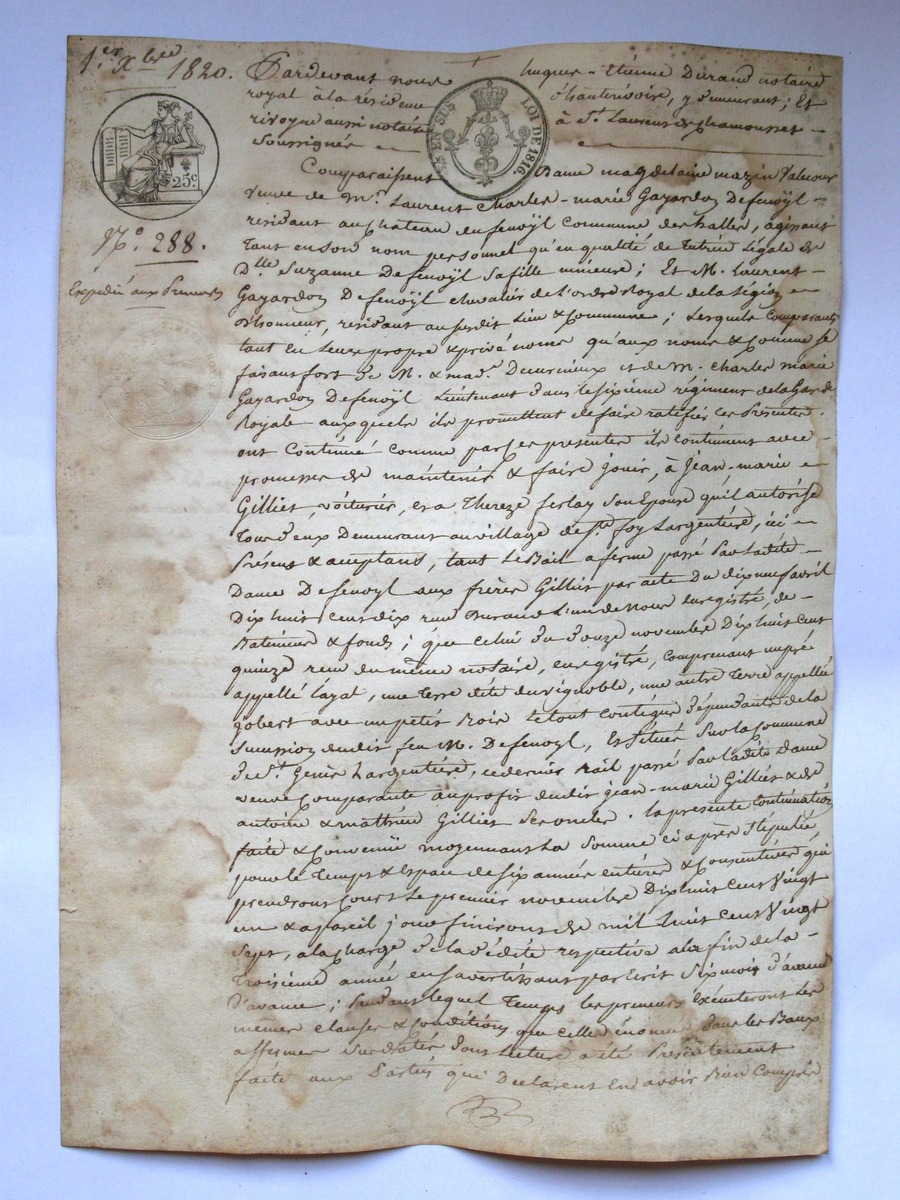 1.er Xbre 1820.
25c
N.o 288.
Expedié aux Preneurs
EN SUS LOI DE 1816.
Pardevant nous hugues-Etienne Durand notaire
royal à la résidence d'hauterivoire, y demeurant; Et
aussi notaire à St. Laurent de Chamousset
Soussignés
Comparaissent Dame magdelaine mazin Valcour
veuve de Mr. Laurent Charles-marie Gayardon Defenoÿl
résidant au Château defenoÿl Commune des halles, agissant
tant en son nom personnel qu'en qualité de tutrice légale de
Dlle Suzanne Defenoÿl sa fille mineure; Et M. Laurent
Gayardon Defenoÿl chevalier de L'ordre Royal de la Légion
D'honneur, résidant au susdit Lieu & Commune; Lesquels Comparants
tant en Leurs propre & privé noms qu'aux noms & Comme se
faisant fort de M. & mad.e et de M. Charles marie
Gayardon Defenoÿl Lieutenant dans le Sixième régiment de la Garde
Royale auxquels ils promettent de faire ratifier ces Présentes
ont Continué Comme par Ces présentes ils continuent avec
promesse de maintenir & faire jouir, à Jean-marie
Gilliet, voiturier, et à Thereze ferlay Son Epouse qu'il autorise
tous deux Demeurant au village de Ste. foy Largentière, ici
Présens & acceptans, tant le Bail a ferme passé Par Ladite
Dame Defenoÿl aux frères Gilliet par acte du dix neuf avril
Dix huit cent dix reçu Durand L'un de Nous enregistré, de
Batimens & fonds; que Celui du douze novembre Dix huit cent
quinze reçu du même notaire, enregistré, Comprenant un pré
appellé Layat, une terre dite du vignoble, une autre Terre appellée
gobert avec un petit Bois Le tout Contigue dépendante de la
Succession dudit feu M. Defenoyl, Et Située Sur la Commune
de St. Genis Largentière, ce dernier Bail passé Par Ladite Dame
veuve Comparante au profit dudit jean-marie Gilliet & de
antoine & mathieu Gilliet Ses oncles. La présente Continuation
faite & Convenüe moyennant La Somme ci après Stipulée,
pour le temps & Espace de Six années entières & Consécutives qui
prendront Cours Le premier novembre Dix huit Cent Vingt
un & apareil jour finiront de mil huit cent Vingt
Sept, a la charge de la dédite respective a la fin de la
Troisième année en s'avertissant par Ecrit Six mois d'avance
D'avance; Pendant lequel temps les preneurs Exécuteront Les
mêmes clauses & Conditions que celles énoncées dans les Baux
affermes Susdatés dont Lecture a été Présentement
faite aux Parties qui Déclarent En avoir Bien Compris